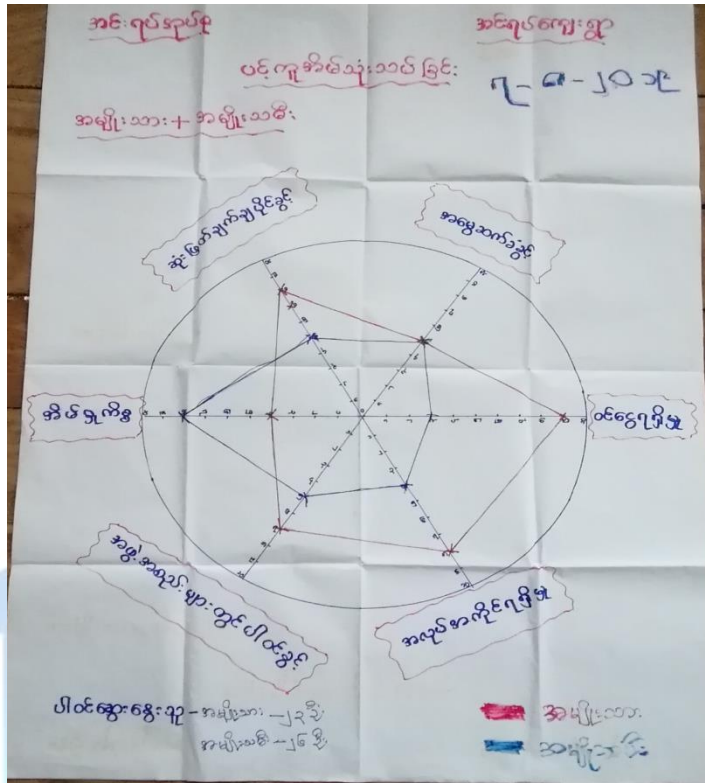 အင်းရပ်အုပ်စု
အင်းရပ်ကျေးရွာ
ပင့်ကူအိမ်သုံးသပ်ခြင်း
၇-၈-၂၀၁၉
အမျိုးသား + အမျိုးသမီး
ဆုံးဖြတ်ချက်ချပိုင်ခွင့်
အမွေဆက်ခံခွင့်
အိမ်မှုကိစ္စ
ဝင်ငွေရရှိမှု
အဖွဲ့အစည်းများတွင်ပါဝင်ခွင့်
အလုပ်အကိုင်ရရှိမှု
ပါဝင်ဆွေးနွေးသူ - အမျိုးသား - ၂၃ ဦး
အမျိုးသမီး - ၂၆ ဦး
အမျိုးသား
အမျိုးသမီး